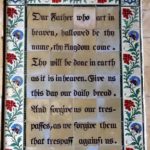 Our Father who art in
heaven, hallowed be thy
name, thy kingdom come.
Thy will be done in earth
as it is in heaven. Give us
this day our daily bread.
And forgive us our tres-
passes, as we forgive them
that trespass against us.